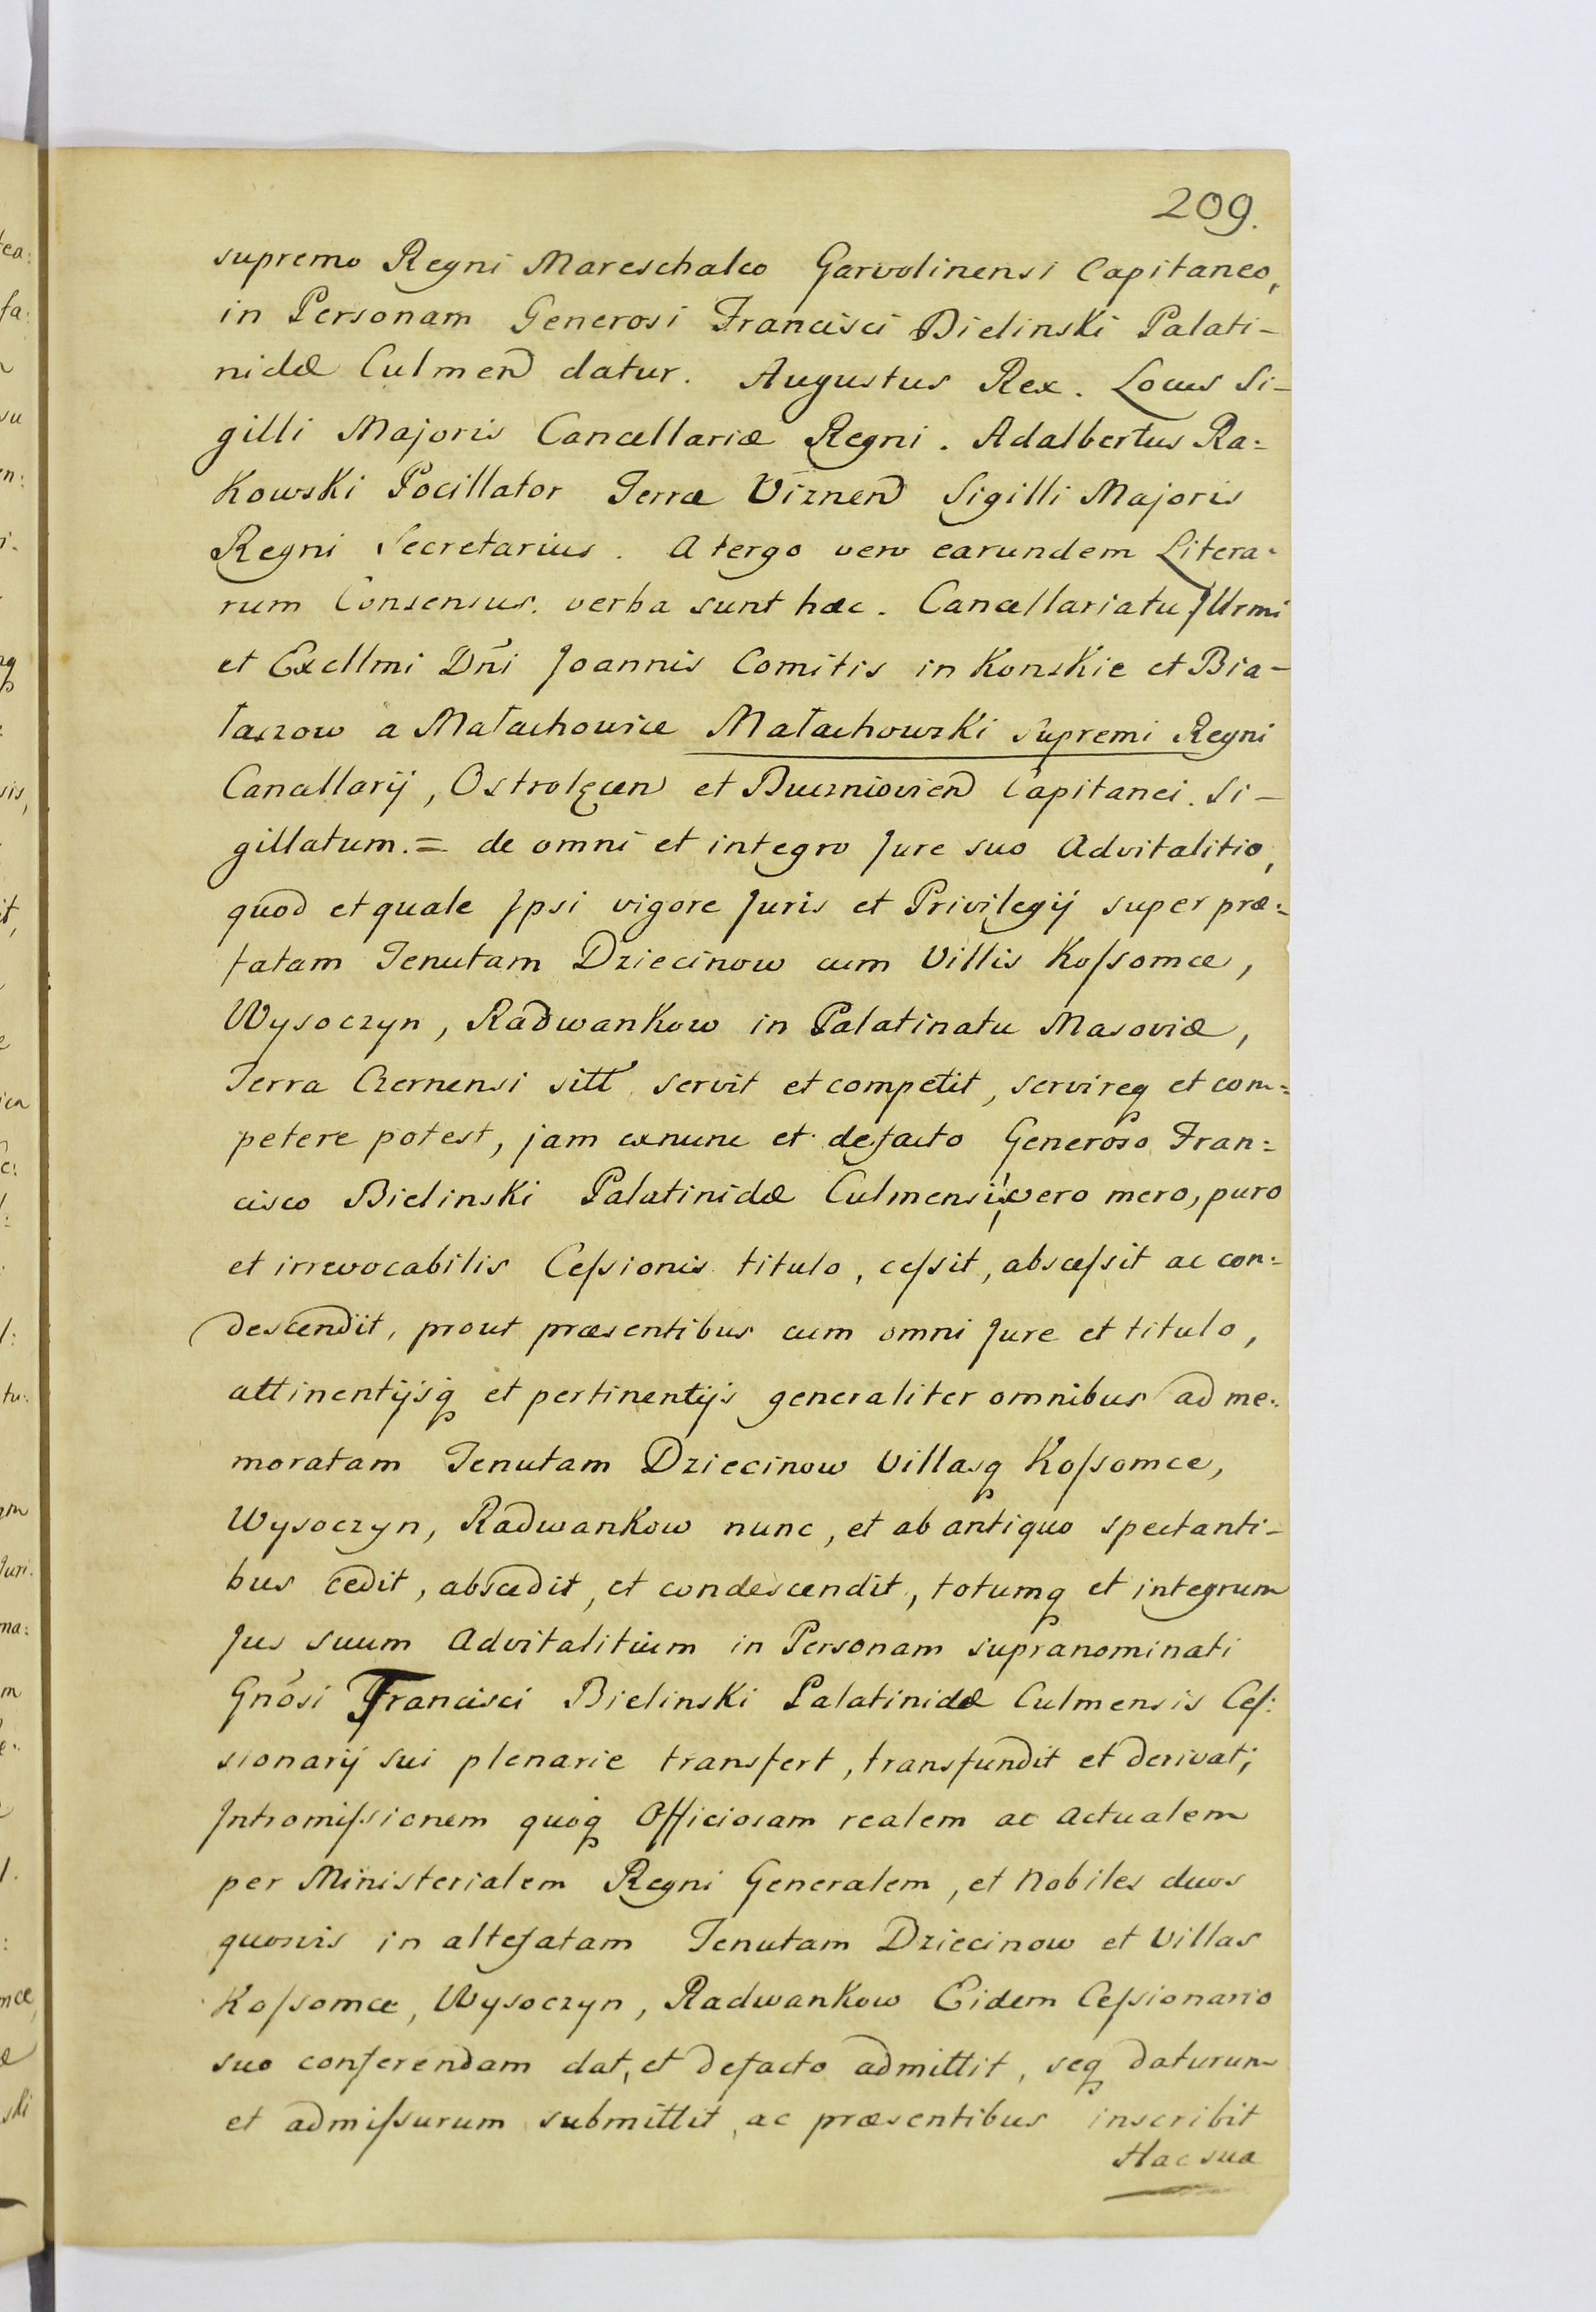 209.
supremo Regni Mareschalco Garvolinensi Capitaneo,
in Personam Generosi Francisci Bielinski Palati-
nidæ Culmen datur. Augustus Rex. Locus Si-
gilli Majoris Cancellariæ Regni. Adalbertus Ra=
Kowski Pocillator Terræ Viznen Sigilli Majoris
Regni Secretarius. A tergo vero earundem Litera=
rum Consensus. verba sunt hæc. Cancellariatu Illrmi
et Excllmi Dñi Joannis Comitis in Konskie et Bia-
łaczow a Małachowice Małachowski Supremi Regni
Cancellarij, Ostrolęcen et Buczniovien Capitanei. Si-
gillatum. = de omni et integro Jure suo Advitalitio,
quod et quale Ipsi vigore Juris et Privilegij super præ=
fatam Tenutam Dziecinow cum Villis Kossomce,
Wysoczyn, Radwankow in Palatinatu Masoviæ,
Terra Czernensi sitt servit et competit, servireq et com=
petere potest, jam exnunc et defacto Generoso Fran=
cisco Bielinski Palatinidæ Culmensi, vero mero, puro
et irrevocabilis Cessionis titulo, cessit, abscessit ac con=
descendit, prout præsentibus cum omni Jure et titulo,
attinentijsq et pertinentijs generaliter omnibus ad me=
moratam Tenutam Dziecinow Villasq Kossomce,
Wysoczyn, Radwankow nunc, et ab antiquo spectanti-
bus cedit, abscedit, et condescendit, totumq et integrum
Jus suum Advitalitium in Personam supranominati
Gnosi Francisci Bielinski Palatinidæ Culmensis Ces=
sionarij sui plenarie transfert, transfundit et derivat;
Intromissionem quoq Officiosam realem ac actualem
per Ministerialem Regni Generalem, et Nobiles duos
quosvis in altefatam Tenutam Dziecinow et Villas
Kossomce, Wysoczyn, Radwankow Eidem Cessionario
suo conferendam dat, et defacto admittit, seq daturum
et admissurum submittit, ac præsentibus inscribit
Hac sua